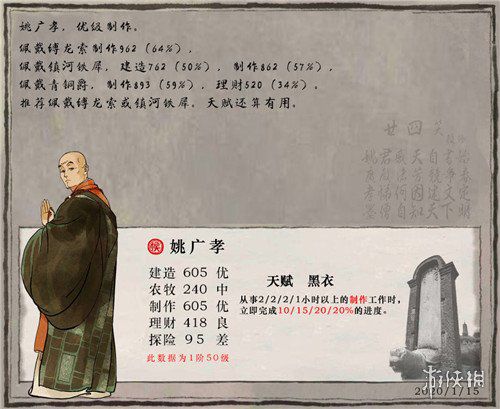 姚广孝，优级制作。
佩戴缚龙索制作962（64%），
佩戴镇河铁犀，建造762（50%），制作862（57%），
佩戴青铜爵，制作893（59%），理财520（34%）。
推荐佩戴缚龙索或镇河铁犀。天赋还算有用。
廿四笑
姚广孝
建造 605 优
农牧 240 中
制作 605 优
理财 418 良
探险 95 差
此数据为1阶50级
天赋 黑衣
从事2/2/2/1小时以上的制作工作时，
立即完成10/15/20/20%的进度。
游侠网
2020/1/15